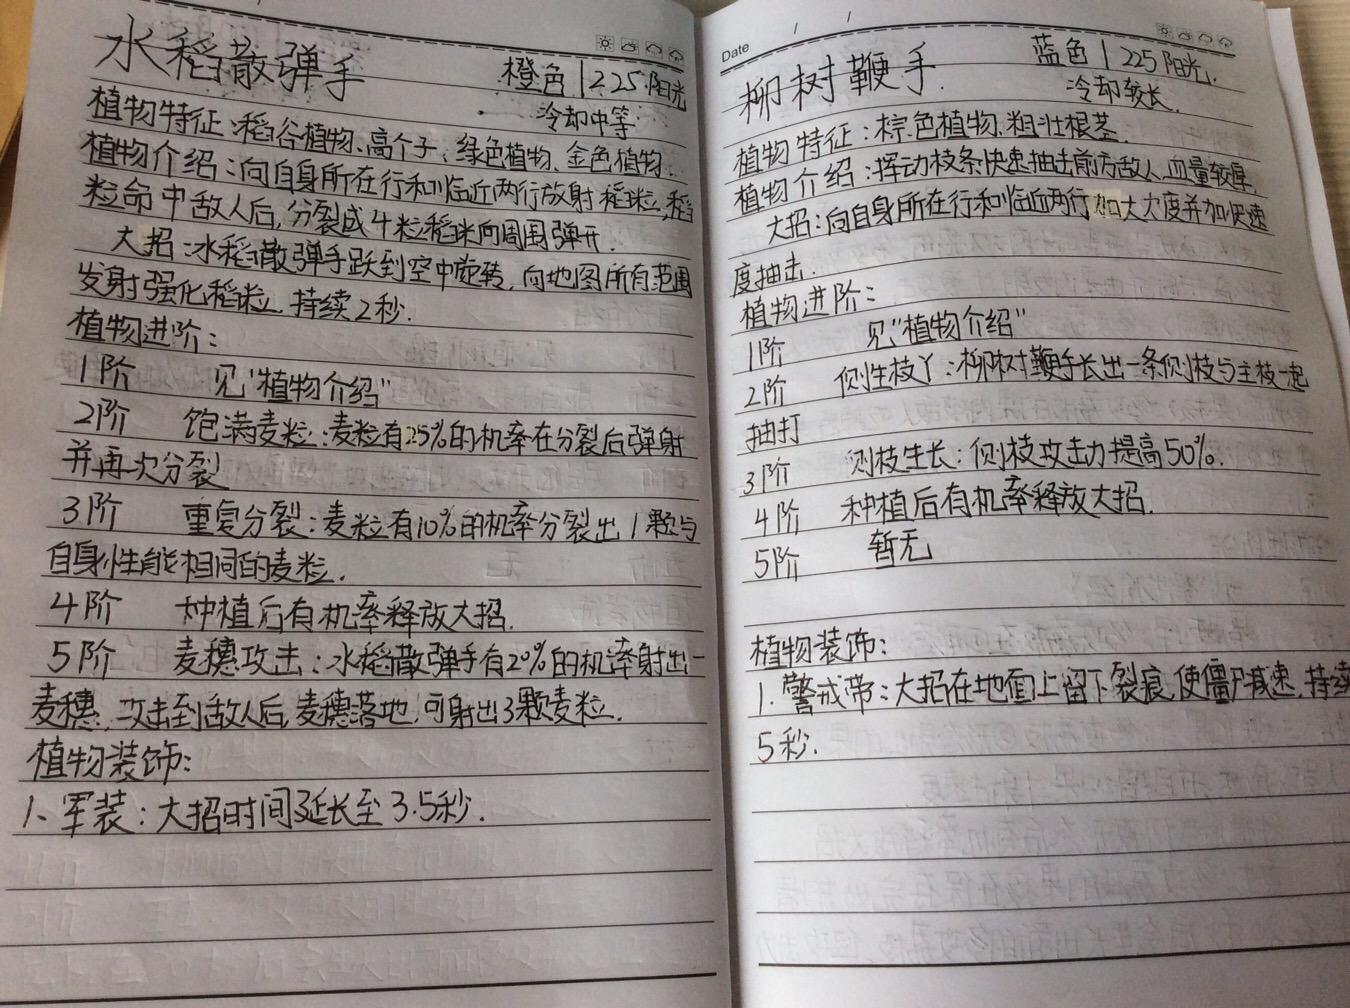 水稻散弹手
橙色 | 225阳光
冷却中等
植物特征：稻谷植物、高个子、绿色植物、金色植物.
植物介绍：向自身所在行和临近两行放射稻粒，稻
粒命中敌人后，分裂成4粒稻米向周围弹开.
大招：水稻散弹手跃到空中旋转，向地图所有范围
发射强化稻粒，持续2秒.
植物进阶：
1阶 见“植物介绍”
2阶 饱满麦粒：麦粒有25%的机率在分裂后弹射
并再次分裂
3阶 重复分裂：麦粒有10%的机率分裂出1颗与
自身性能相同的麦粒.
4阶 种植后有机率释放大招.
5阶 麦穗攻击：水稻散弹手有20%的机率射出一
麦穗，攻击到敌人后，麦穗落地，可射出3颗麦粒.
植物装饰：
1、军装：大招时间延长至3.5秒.
Date / /
柳树鞭手.
蓝色 | 225阳光.
冷却较长.
植物特征：棕色植物、粗壮根茎.
植物介绍：挥动枝条快速抽击前方敌人，血量较厚.
大招：向自身所在行和临近两行加大力度并加快速
度抽击.
植物进阶：
1阶 见“植物介绍”
2阶 侧性枝丫：柳树鞭手长出一条侧枝与主枝一起
抽打
3阶 侧枝生长：侧枝攻击力提高50%.
4阶 种植后有机率释放大招.
5阶 暂无
植物装饰：
1.警戒带：大招在地面上留下裂痕，使僵尸减速，持续
5秒.